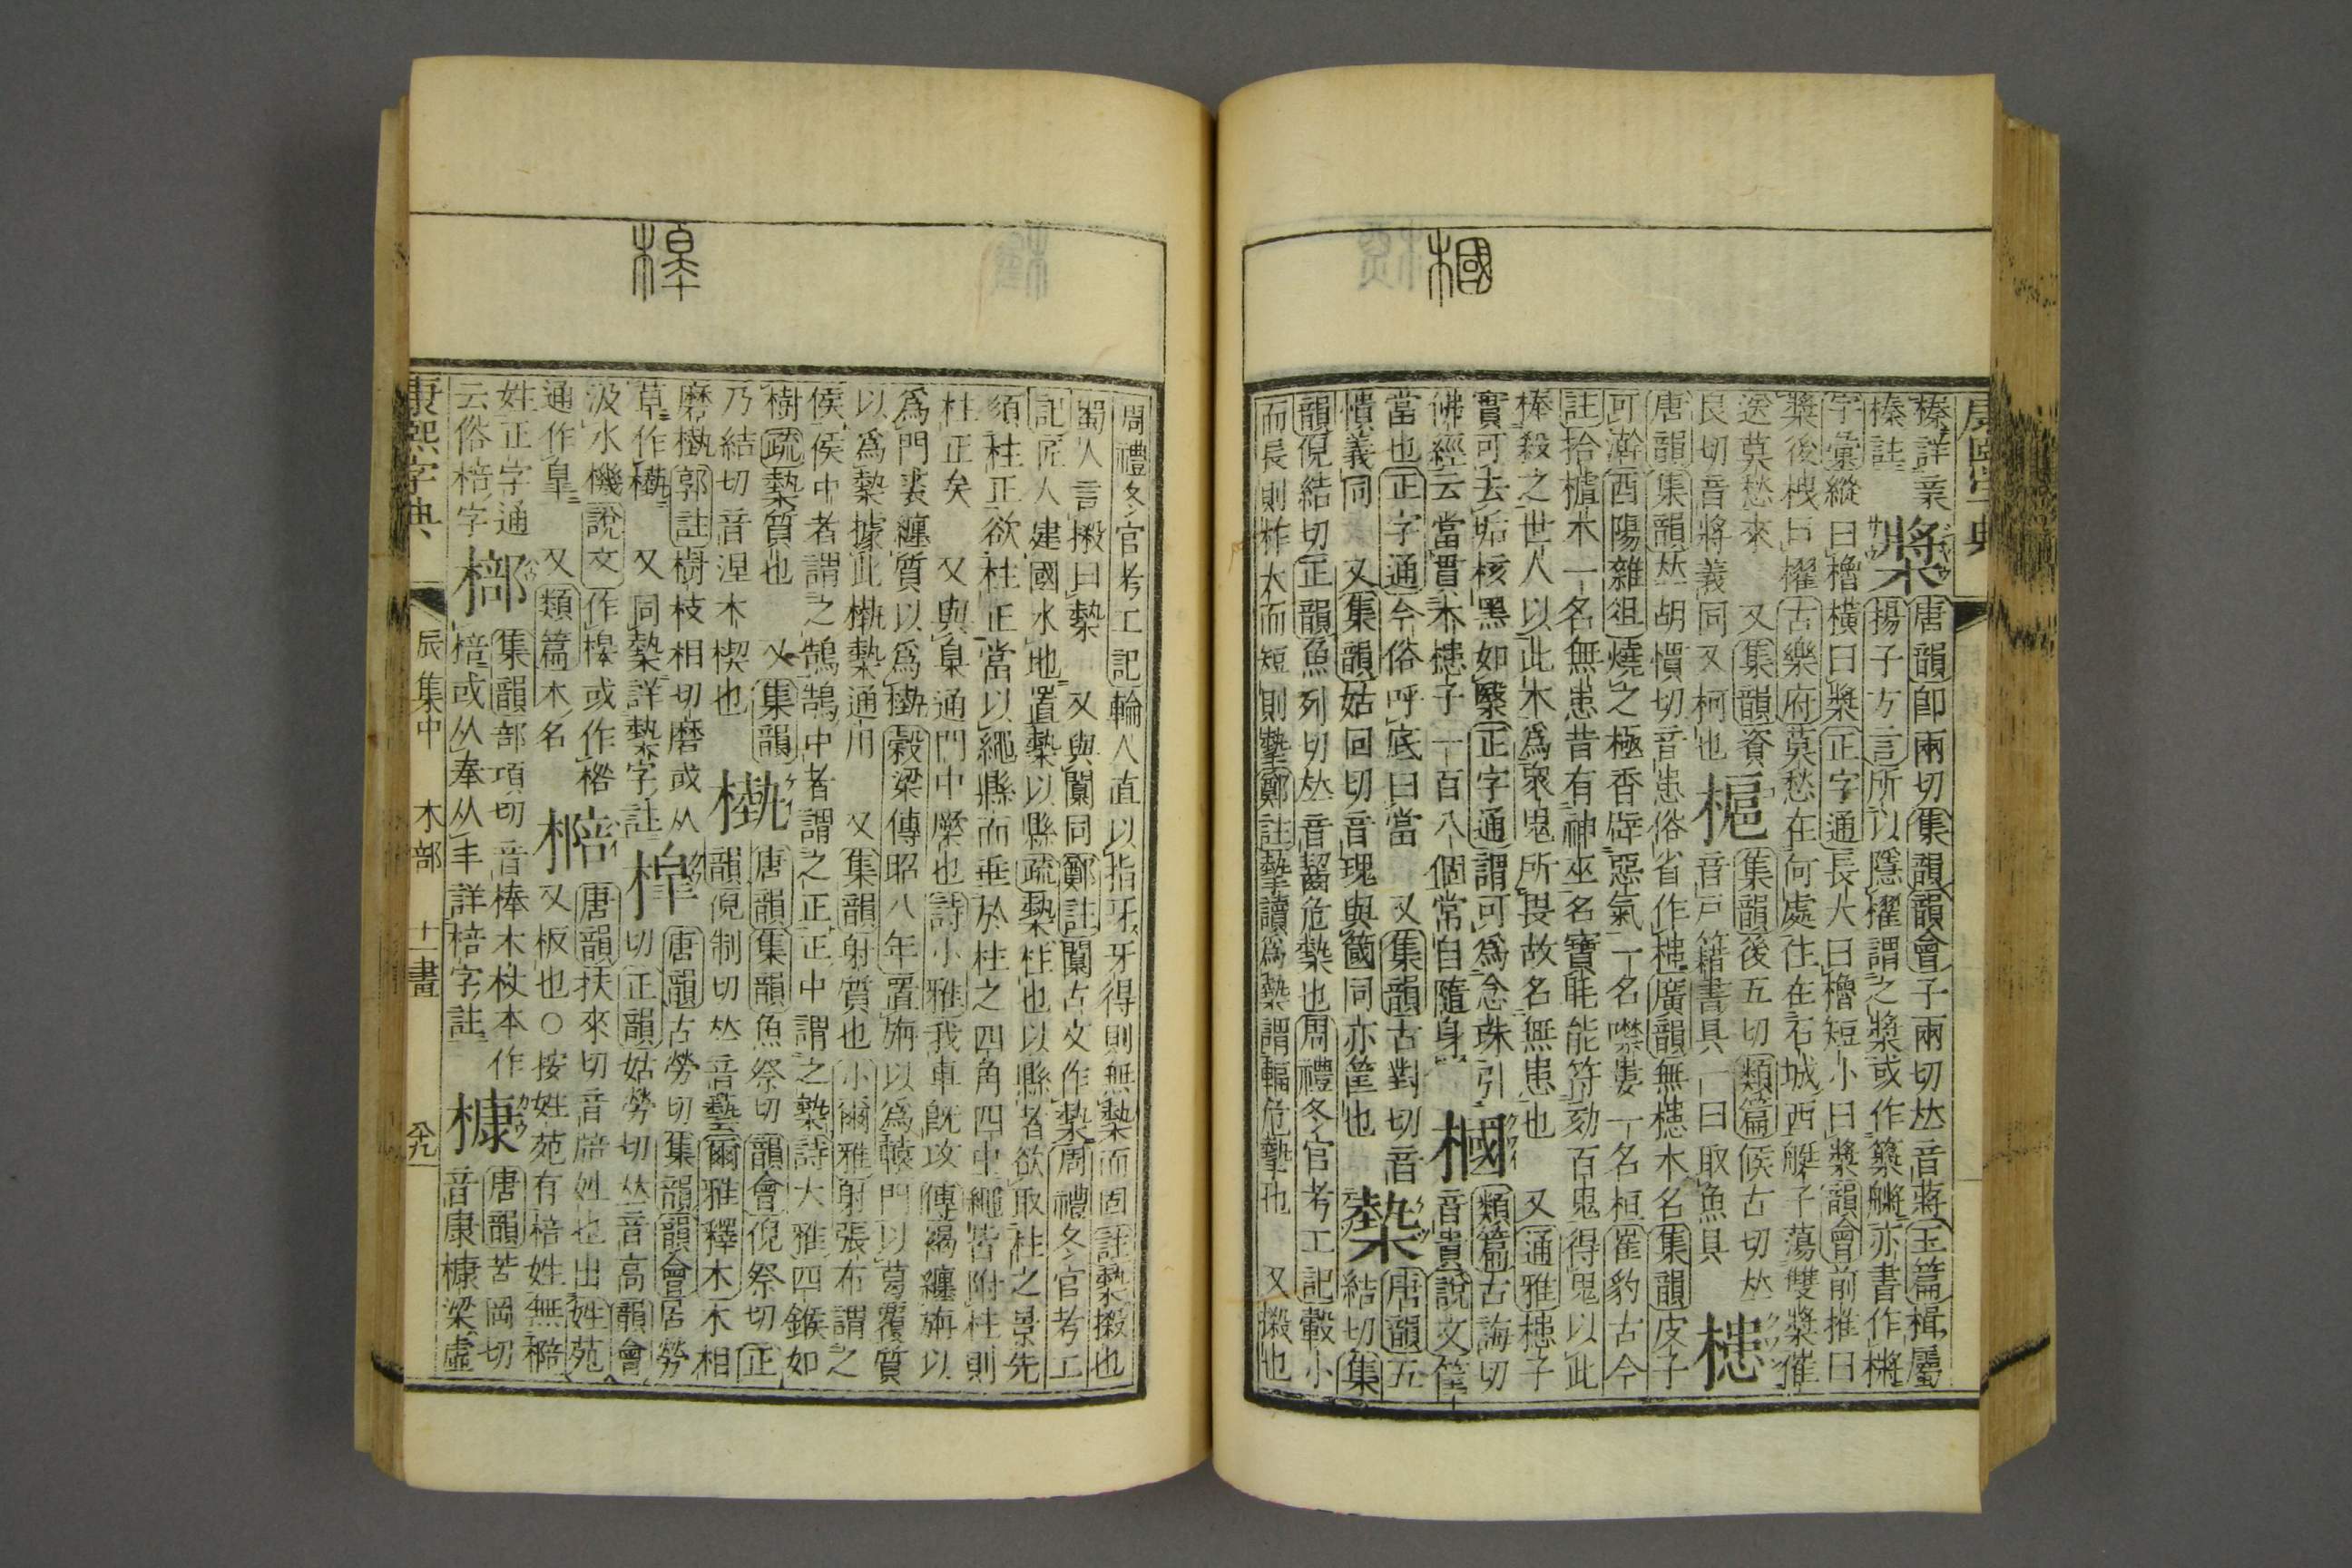 康熙字典
槶
榛詳業 槳 唐韻卽兩切集韻韻會子兩切𠀤音蔣玉篇楫屬
榛註 揚子方言所以隱櫂謂之槳或作亦書作
字彙縱曰櫓橫曰槳正字通長大曰櫓短小曰槳韻會前推曰
槳後曳曰櫂古樂府莫愁在何處住在石城西艇子蕩雙槳催
送莫愁來 又集韻資 槴 集韻後五切類篇候古切𠀤
良切音將義同又柯也 音戸籍書具一曰取魚具 槵
唐韻集韻𠀤胡慣切音患俗省作槵廣韻無槵木名集韻皮子
可澣酉陽雜俎燒之極香辟惡氣一名噤婁一名桓崔豹古今
註拾櫨木一名無患昔有神巫名寶眊能符劾百鬼得鬼以此
棒殺之世人以此木爲衆鬼所畏故名無患也 又通雅槵子
實可去垢核黑如瑿正字通謂可爲念珠引 槶 類篇古誨切
佛經云當貫木槵子一百八個常自隨身 音貴說文筐
當也正字通今俗呼底曰當 又集韻古對切音
憒義同 又集韻姑回切音瑰與簂同亦筐也 槷 唐韻五
結切集
韻倪結切正韻魚列切𠀤音齧危槷也周禮冬官考工記轂小
而長則柞大而短則摯鄭註摯讀爲槷謂輻危摯也 又㯫也
槹
周禮冬官考工記輪人直以指牙牙得則無槷而固註槷㯫也
蜀人言㯫曰槷 又與闑同鄭註闑古文作槷周禮冬官考工
記匠人建國水地置槷以縣疏槷柱也以縣者欲取柱之景先
須柱正欲柱正當以繩縣而垂於柱之四角四中繩皆附柱則
柱正矣 又與臬通門中橜也詩小雅我車旣攻傳褐纏旃以
爲門裘纏質以爲槸穀梁傳昭八年置旃以爲轅門以葛覆質
以爲槷據此槸槷通用 又集韻射質也小爾雅射張布謂之
侯侯中者謂之鵠鵠中者謂之正正中謂之槷詩大雅四鍭如
樹疏槷質也 又集韻 槸 唐韻集韻魚祭切韻會倪祭切正
乃結切音涅木楔也 韻倪制切𠀤音藝爾雅釋木木相
磨槸郭註樹枝相切磨或从 唐韻古勞切集韻韻會居勞
草作㙯 又同槷詳槷字註 槹 切正韻姑勞切𠀤音高韻會
汲水機說文作橰或作㮮 棓 唐韻扶來切音陪姓也出姓苑
通作皐 又類篇木名 又板也○按姓苑有棓姓無
姓正字通 集韻部項切音棒木杖本作 槺 唐韻苦岡切
云俗棓字 棓或从奉从丰詳棓字註 音康槺梁虛
康熙字典
辰集中 木部 十一畫